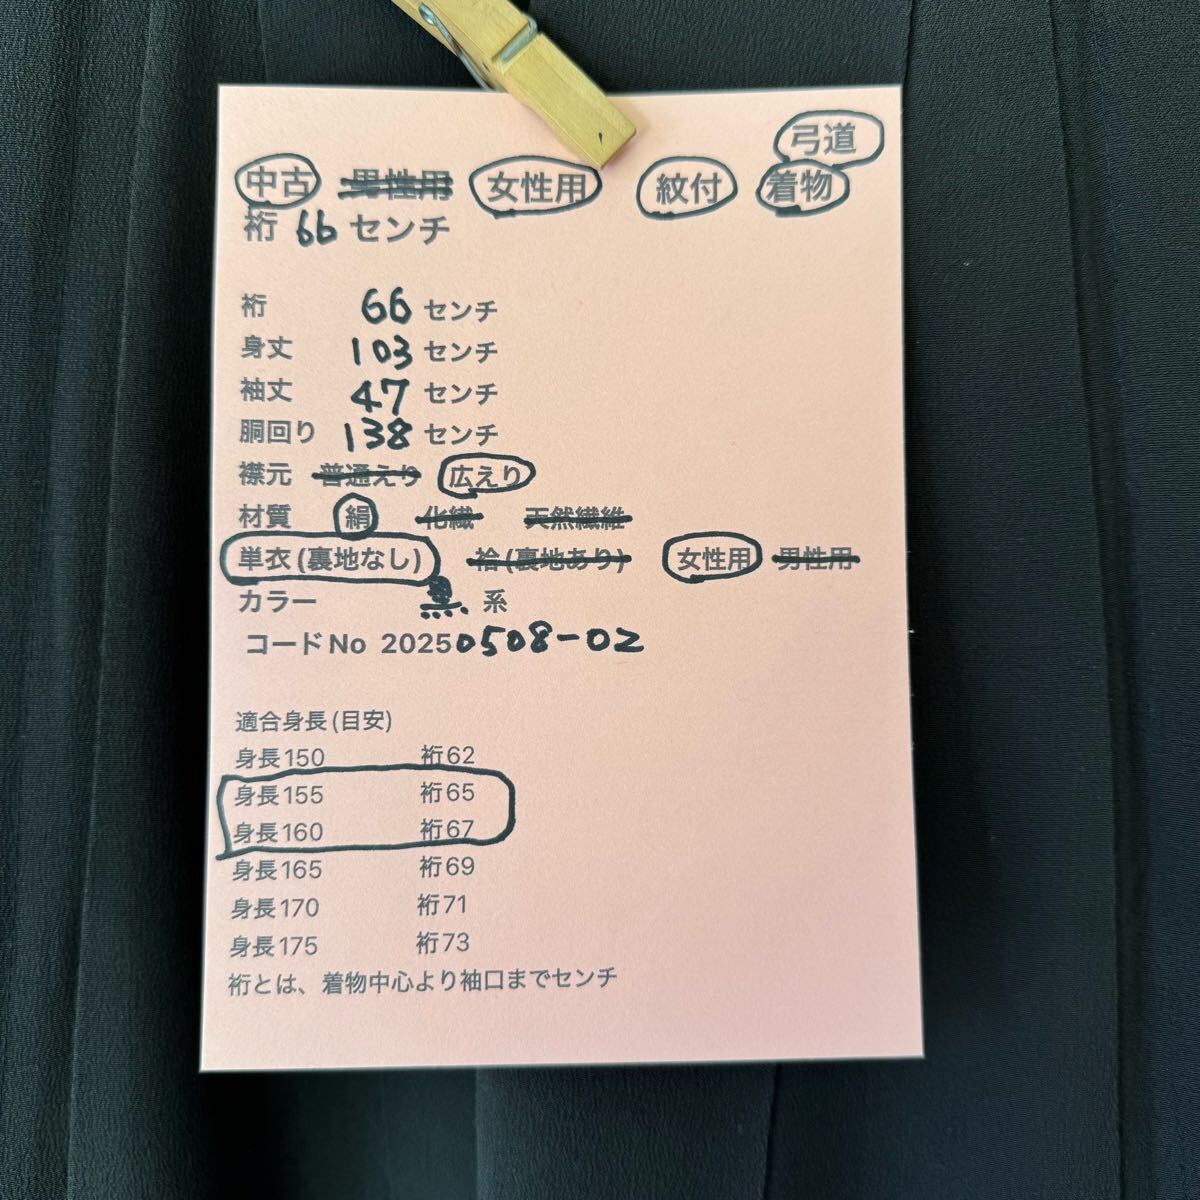 弓道
中古 男性用 女性用 紋付 着物
裄 66 センチ
裄 66 センチ
身丈 103 センチ
袖丈 47 センチ
胴回り 138 センチ
襟元 普通えり 広えり
材質 絹 化繊 天然繊維
単衣(裏地なし) 袷(裏地あり) 女性用 男性用
カラー 黒 系
コードNo 20250508-02
適合身長(目安)
身長150 裄62
身長155 裄65
身長160 裄67
身長165 裄69
身長170 裄71
身長175 裄73
裄とは、着物中心より袖口までセンチ